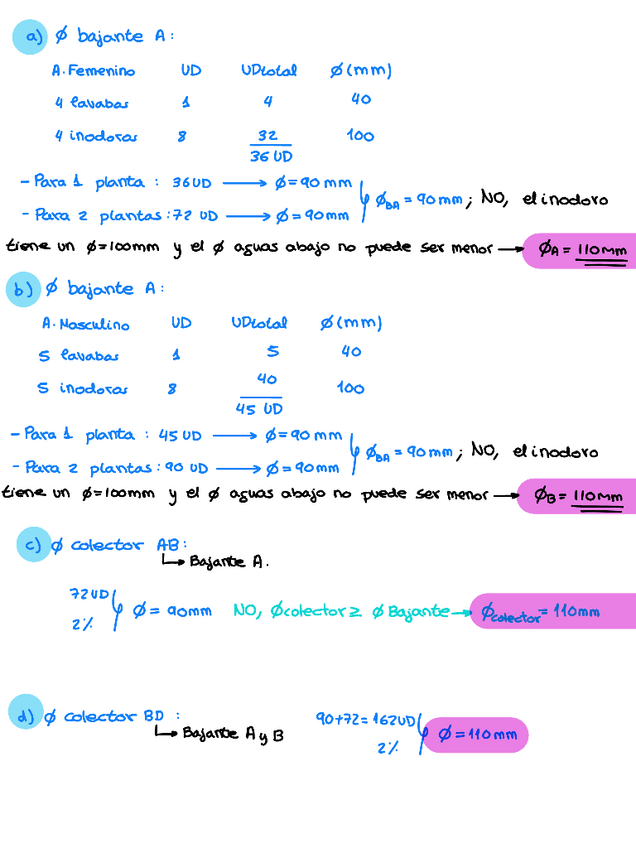 a) ϕ bajante A:
A. Femenino UD UDtotal ϕ(mm)
4 lavabos 1 4 40
4 inodoros 8 32 100
36 UD
- Para 1 planta : 36 UD → ϕ = 90 mm
- Para 2 plantas: 72 UD → ϕ = 90 mm
ϕBA = 90 mm; NO, el inodoro
tiene un ϕ=100mm y el ϕ aguas abajo no puede ser menor → ϕA = 110mm
b) ϕ bajante A:
A. Masculino UD UDtotal ϕ(mm)
5 lavabos 1 5 40
5 inodoros 8 40 100
45 UD
- Para 1 planta : 45 UD → ϕ = 90 mm
- Para 2 plantas: 90 UD → ϕ = 90 mm
ϕBA = 90 mm; NO, el inodoro
tiene un ϕ=100mm y el ϕ aguas abajo no puede ser menor → ϕB = 110mm
c) ϕ colector AB:
↳ Bajante A.
72 UD
2%
ϕ = 90mm NO, ϕcolector ≥ ϕ Bajante → ϕcolector = 110mm
d) ϕ colector BD :
↳ Bajante A y B
90+72 = 162 UD
2%
ϕ = 110 mm